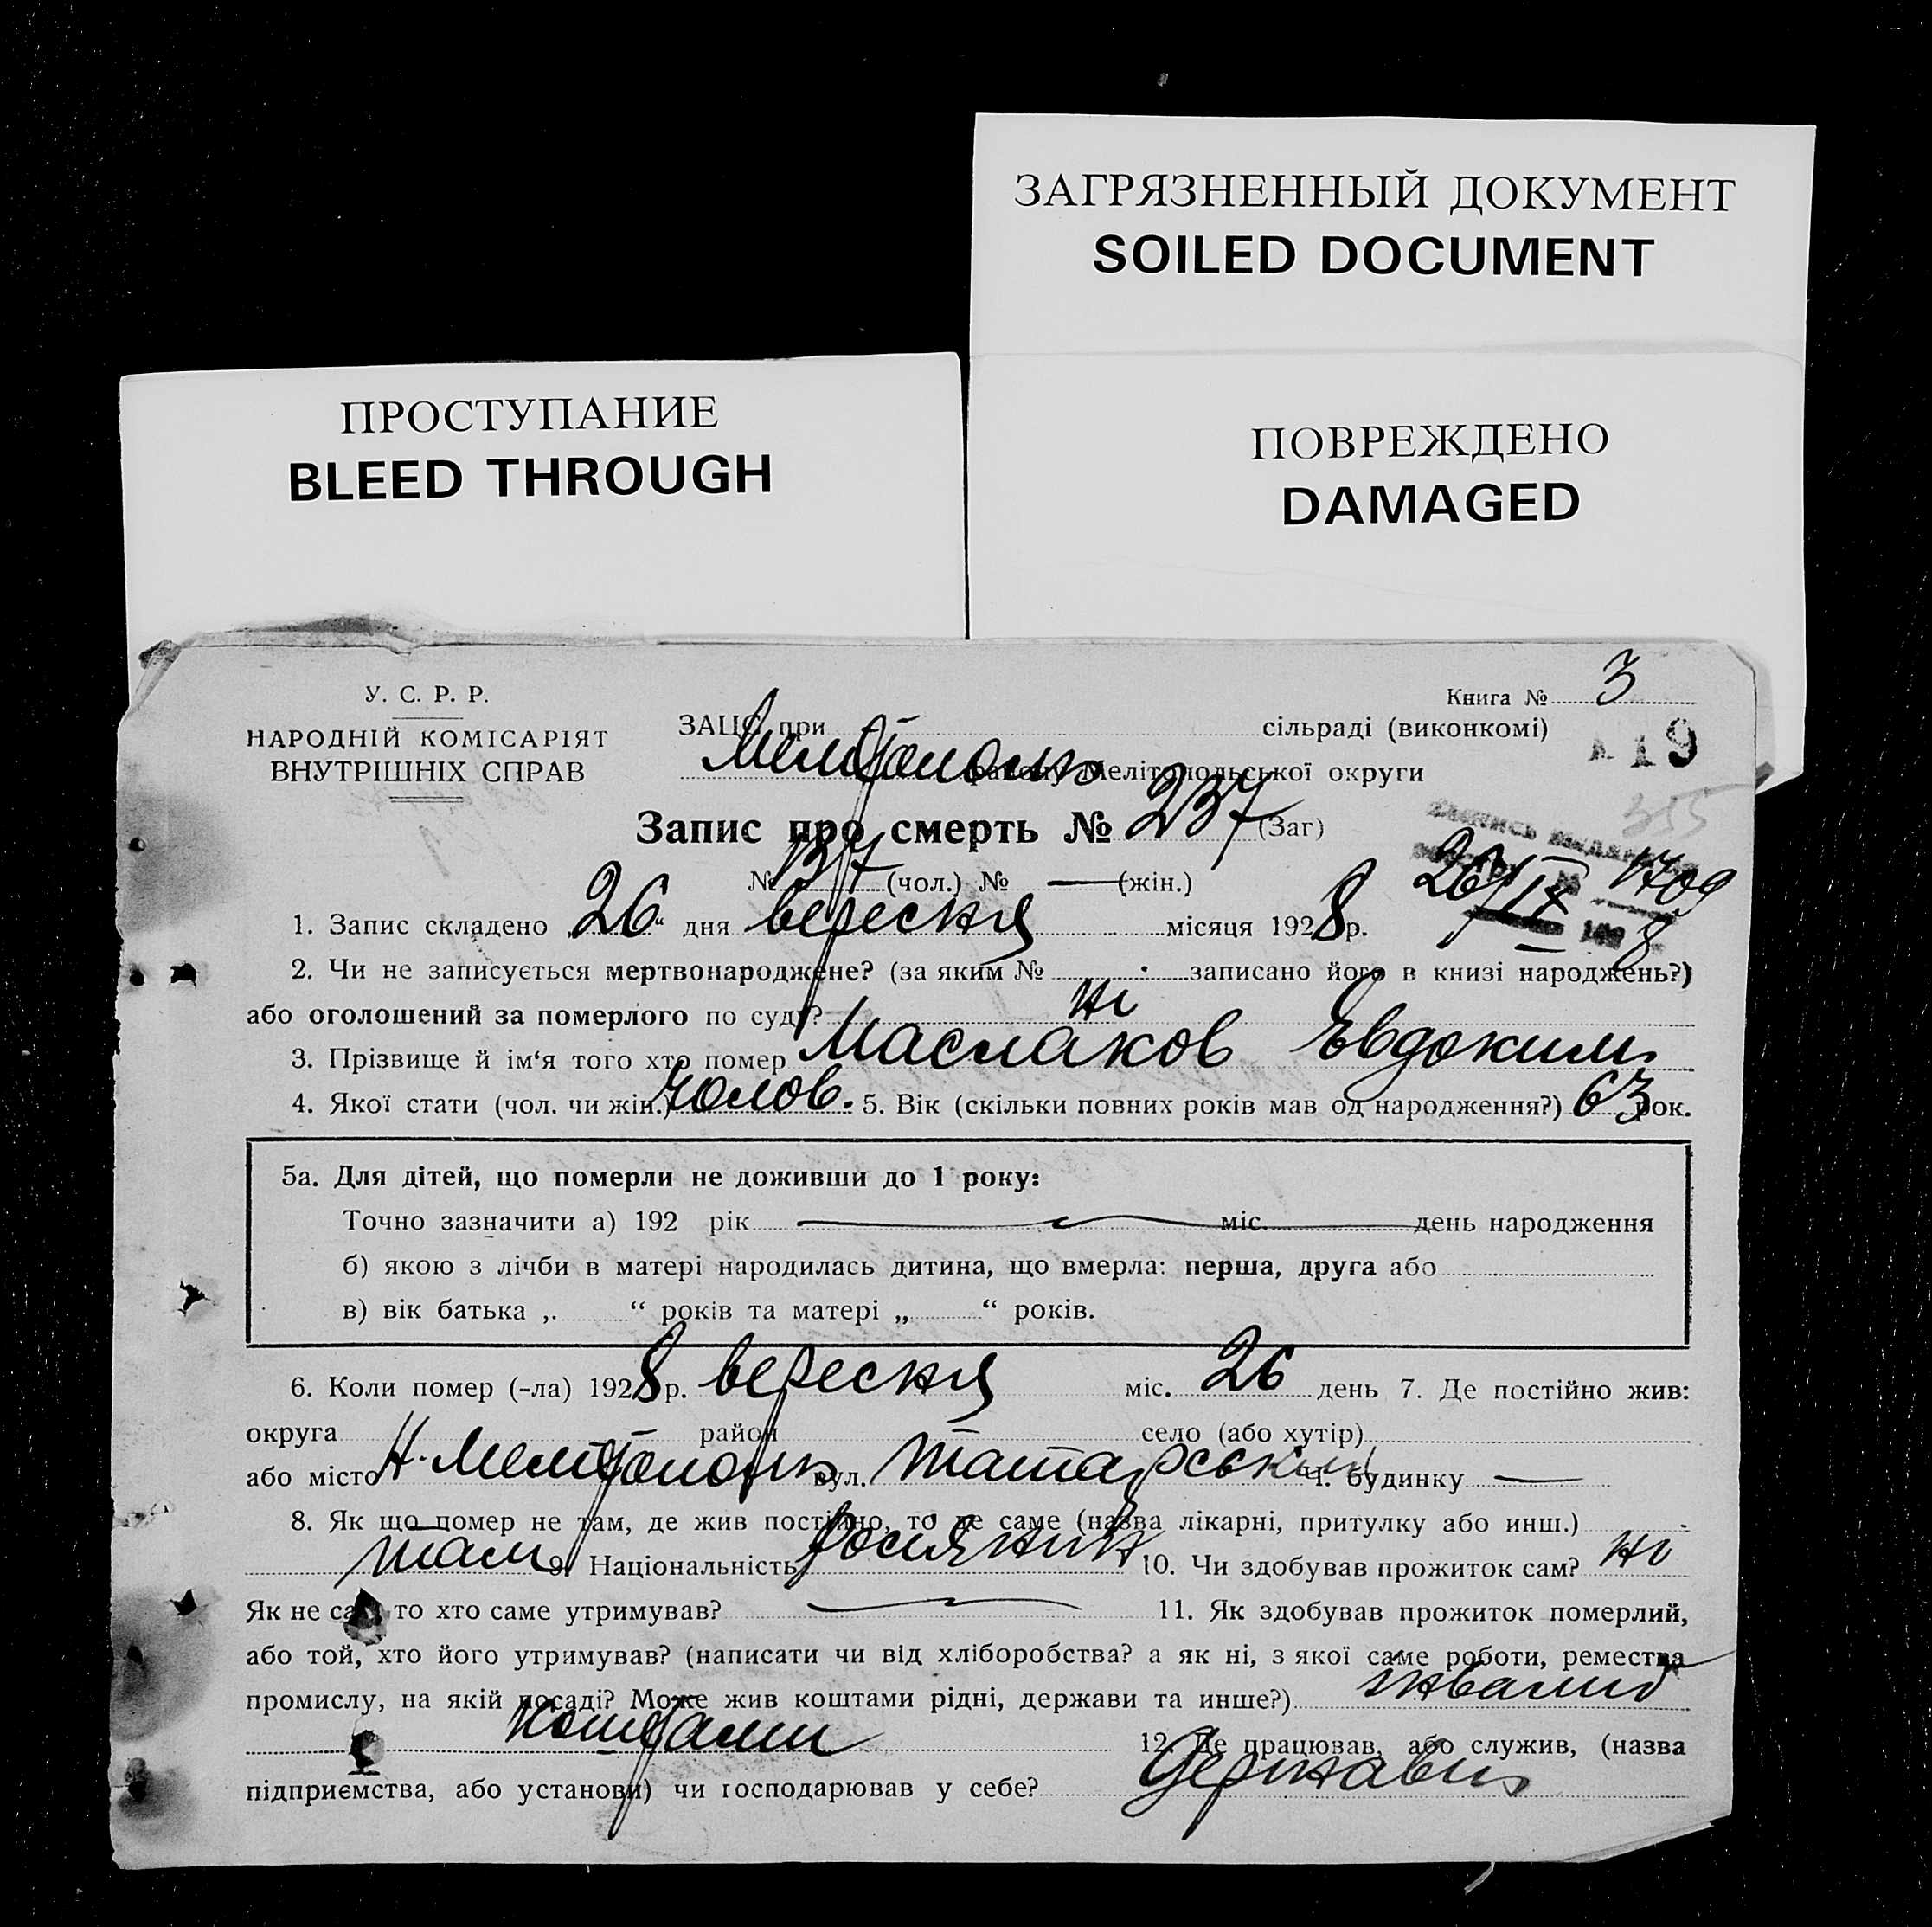 ЗАГРЯЗНЕННЫЙ ДОКУМЕНТ
SOILED DOCUMENT
ПРОСТУПАНИЕ
BLEED THROUGH
ПОВРЕЖДЕНО
DAMAGED
У. С. Р. Р.
НАРОДНІЙ КОМІСАРІЯТ
ВНУТРІШНІХ СПРАВ
Книга № 3
ЗАЦС при сільраді (виконкомі)
19
району Мелітопольської округи
355
Запис про смерть № 237 (Заг)
№ 137 (чол.) № — (жін.)
26/IX 1709
1. Запис складено „26“ дня вересня місяця 1928 р.
2. Чи не записується мертвонароджене? (за яким № записано його в книзі народжень?)
або оголошений за померлого по суду? ні
3. Прізвище й ім‘я того хто помер Маслаков Євдоким
4. Якої стати (чол. чи жін.) Чолов. 5. Вік (скільки повних років мав од народження?) 63 рок.
5а. Для дітей, що померли не доживши до 1 року:
Точно зазначити а) 192 рік міс. день народження
б) якою з лічби в матері народилась дитина, що вмерла: перша, друга або
в) вік батька „ “ років та матері „ “ років.
6. Коли помер (-ла) 1928 р. вересня міс. 26 день 7. Де постійно жив:
округа район село (або хутір)
або місто вул. Татарський Ч. будинку —
8. Як що помер не там, де жив постійно, то де саме (назва лікарні, притулку або инш.)
там 9. Національність росіянин 10. Чи здобував прожиток сам? ні
Як не сам то хто саме утримував? — 11. Як здобував прожиток померлий,
або той, хто його утримував? (написати чи від хліборобства? а як ні, з якої саме роботи, ремества
промислу, на якій посаді? Може жив коштами рідні, держави та инше?) інвалид
коштами 12. Де працював, або служив, (назва
підприємства, або установи) чи господарював у себе? Держави